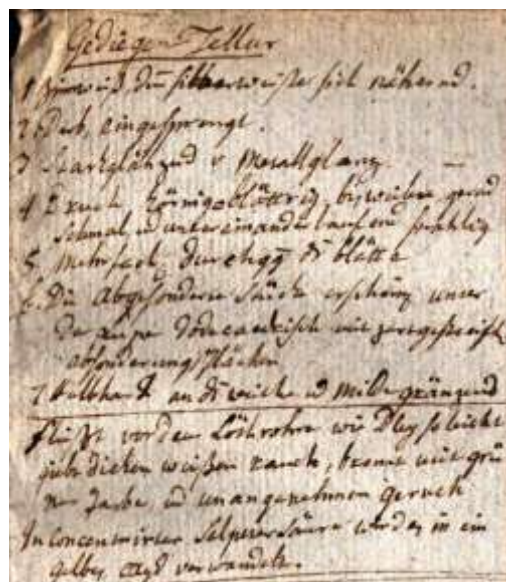 Gediegen Tellur
1 Zinnweiß, dem silberweißen sich nähernd.
2. Derb, eingesprengt.
3 Starkglänzend v Metallglanz —
4 Bruch körnigblättrig, bisweilen gerad
schmal und untereinanderlaufend strahlig
5. Mehrfach Durchgg d blätter
6. Die Abgesonderte Stücke
mit zartgestreift
absonderungsflächen
7 Halbhart an d weiche und Milde gränzend
Fließt vor dem Löthrohre wie Bley so leicht
giebt dicken weißen rauch, brennt mit grü
ner Farbe, und unangenehmen geruch
In Concentrirter Salpetersäure wird es in ein
gelbes verwandelt.